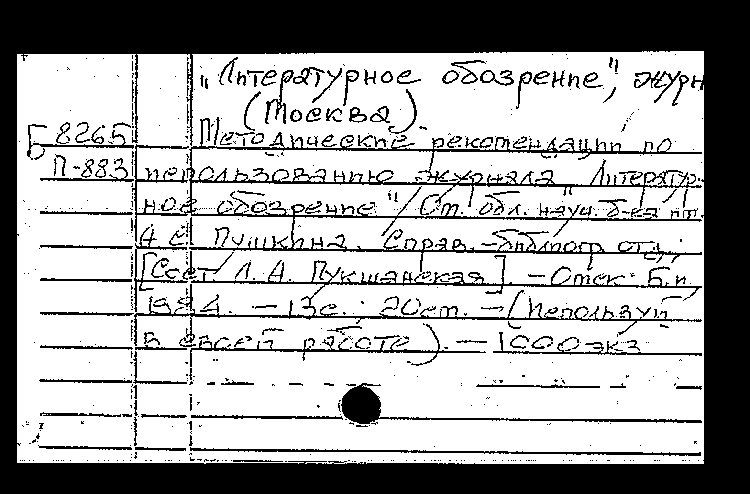 "Литературное обозрение", журн
(Москва)
Б 8265 Методические рекомендации по
П-883 использованию журнала "Литератур-
ное обозрение" / Ом. обл. науч. б-ка им.
А. С. Пушкина. Справ.-библиогр. отд.;
[Сост. Л. А. Пукшанская]. - Омск: Б.и.,
1984. - 13 с.; 20 см. - (Используй
в своей работе). - 1000 экз